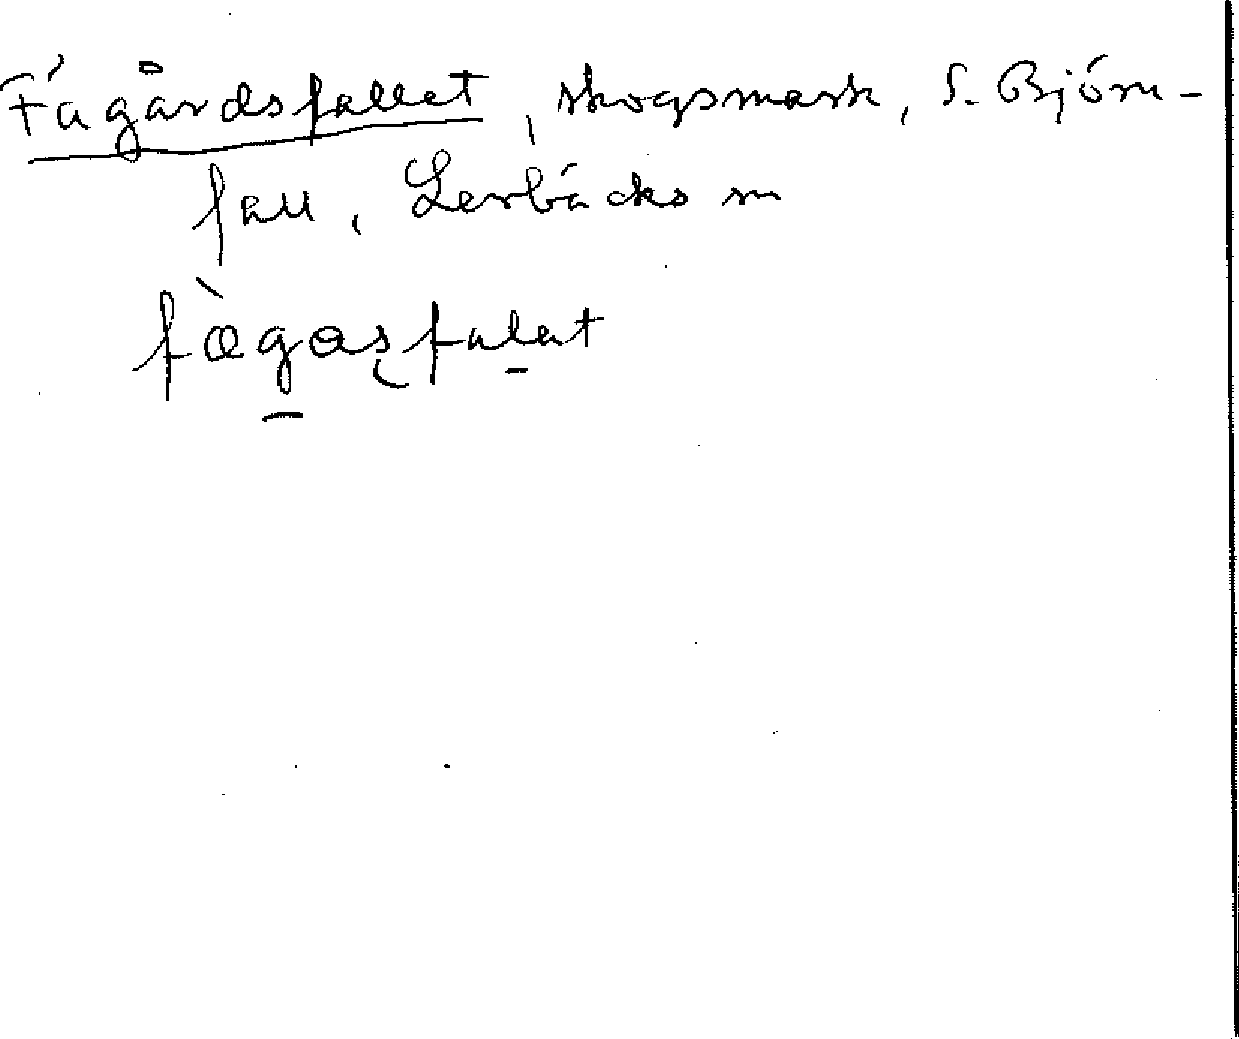 Fägårdsfallet, skogsmark, S. Björn-
fall, Lerbäcks sn
fægasfalat